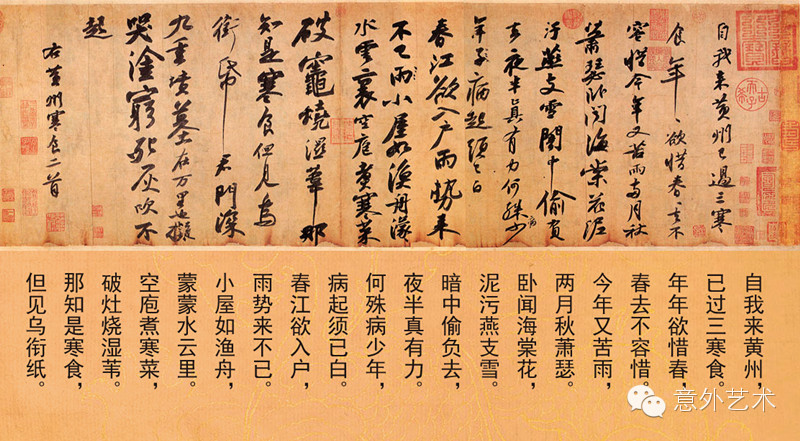 自我來黃州已過三寒
食年〻欲惜春〻去不
容惜今年又苦雨兩月秋
蕭瑟卧聞海棠花泥
汙燕支雪闇中偷負
去夜半真有力何殊病少
年子病起頭已白
春江欲入戶雨勢來
不已雨小屋如漁舟濛〻
水雲裏空庖煮寒菜
破竈燒濕葦那
知是寒食但見烏
銜帋君門深
九重墳墓在萬里也擬
哭塗窮死灰吹不
起
右黃州寒食二首
自我来黄州，
已过三寒食。
年年欲惜春，
春去不容惜。
今年又苦雨，
两月秋萧瑟。
卧闻海棠花，
泥污燕支雪。
暗中偷负去，
夜半真有力。
何殊病少年，
病起须已白。
春江欲入户，
雨势来不已。
小屋如渔舟，
蒙蒙水云里。
空庖煮寒菜，
破灶烧湿苇。
那知是寒食，
但见乌衔纸。
意外艺术